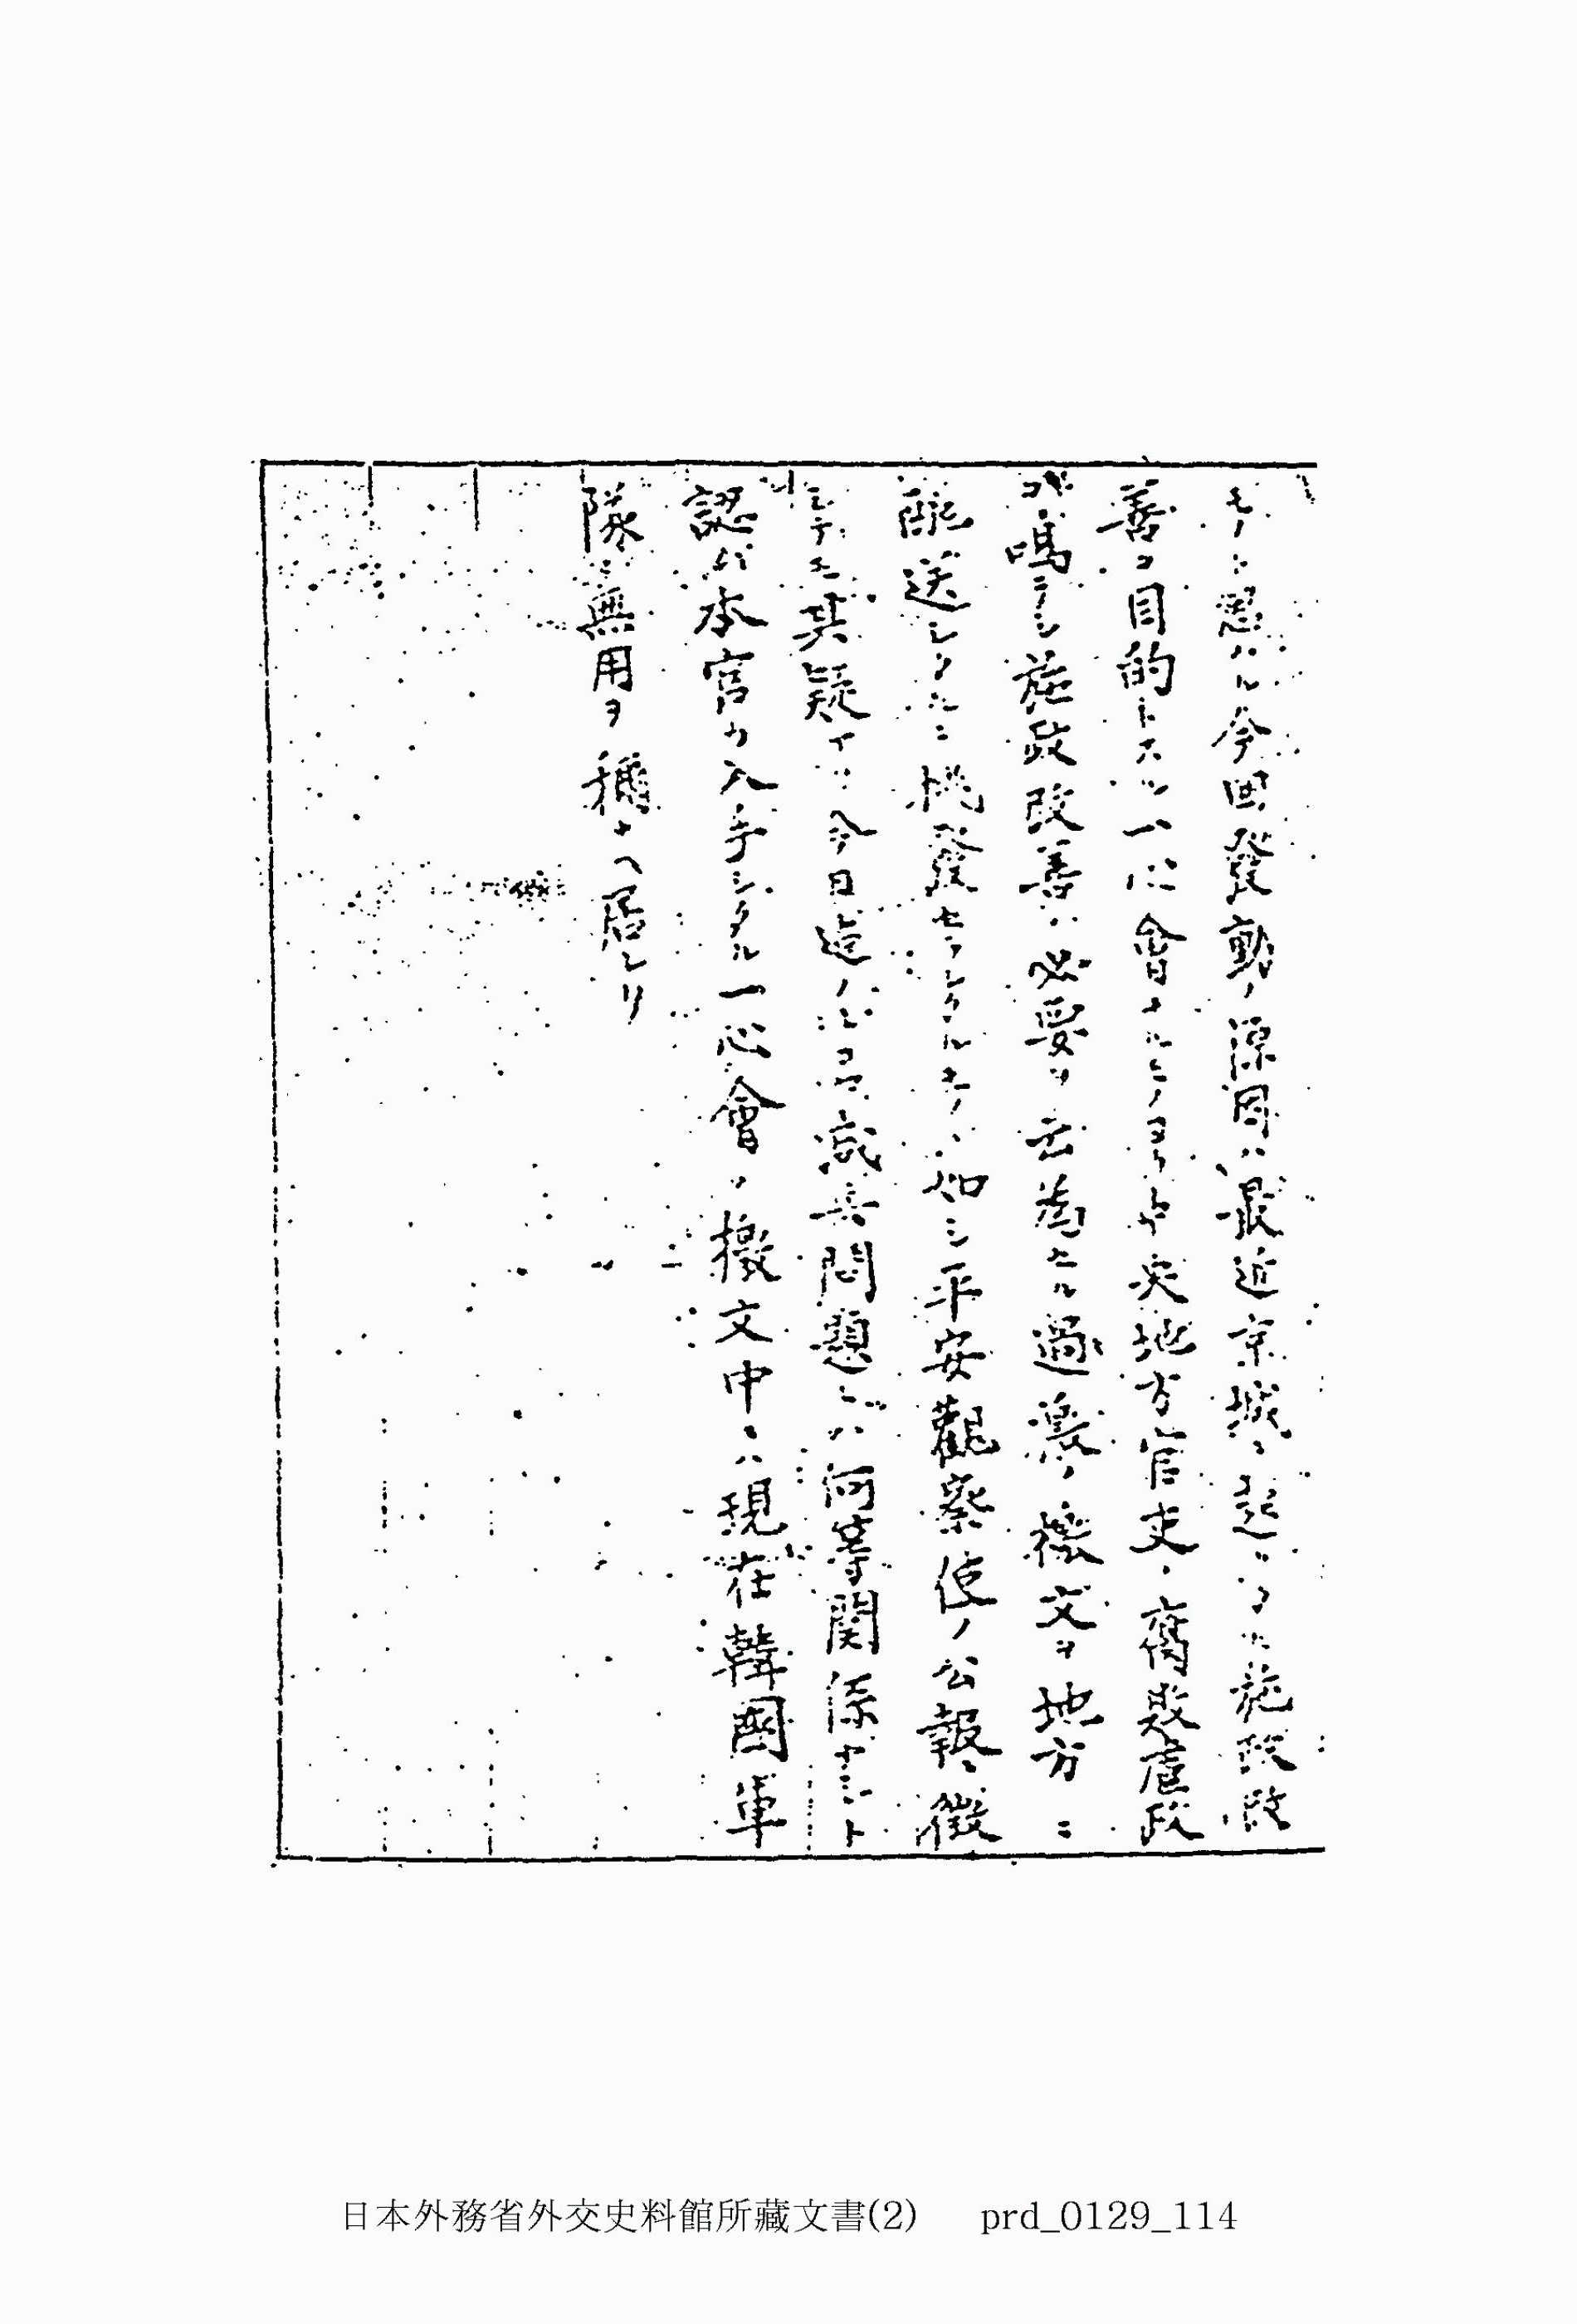 モノト思ハル今回發動ノ原因ハ最近京城ニ起リ施政改
善ヲ目的トスル一心會ナルモノヨリ中央地方官吏ノ腐敗虐政
ヲ鳴ラシ施政改善ノ必要ヲ云為セル過激ノ檄文ヲ地方ニ
配送シタルニ挑發セラレタルモノヽ如シ平安觀察使ノ公報ニ徴
シテモ其疑イ今日迄ノ減兵問題トハ何等関係ナシト
認ム本官カ入手シタル一心會ノ檄文中ニハ現在韓國軍
隊ノ無用ヲ稱ナヘ居レリ
日本外務省外交史料館所藏文書(2) prd_0129_114